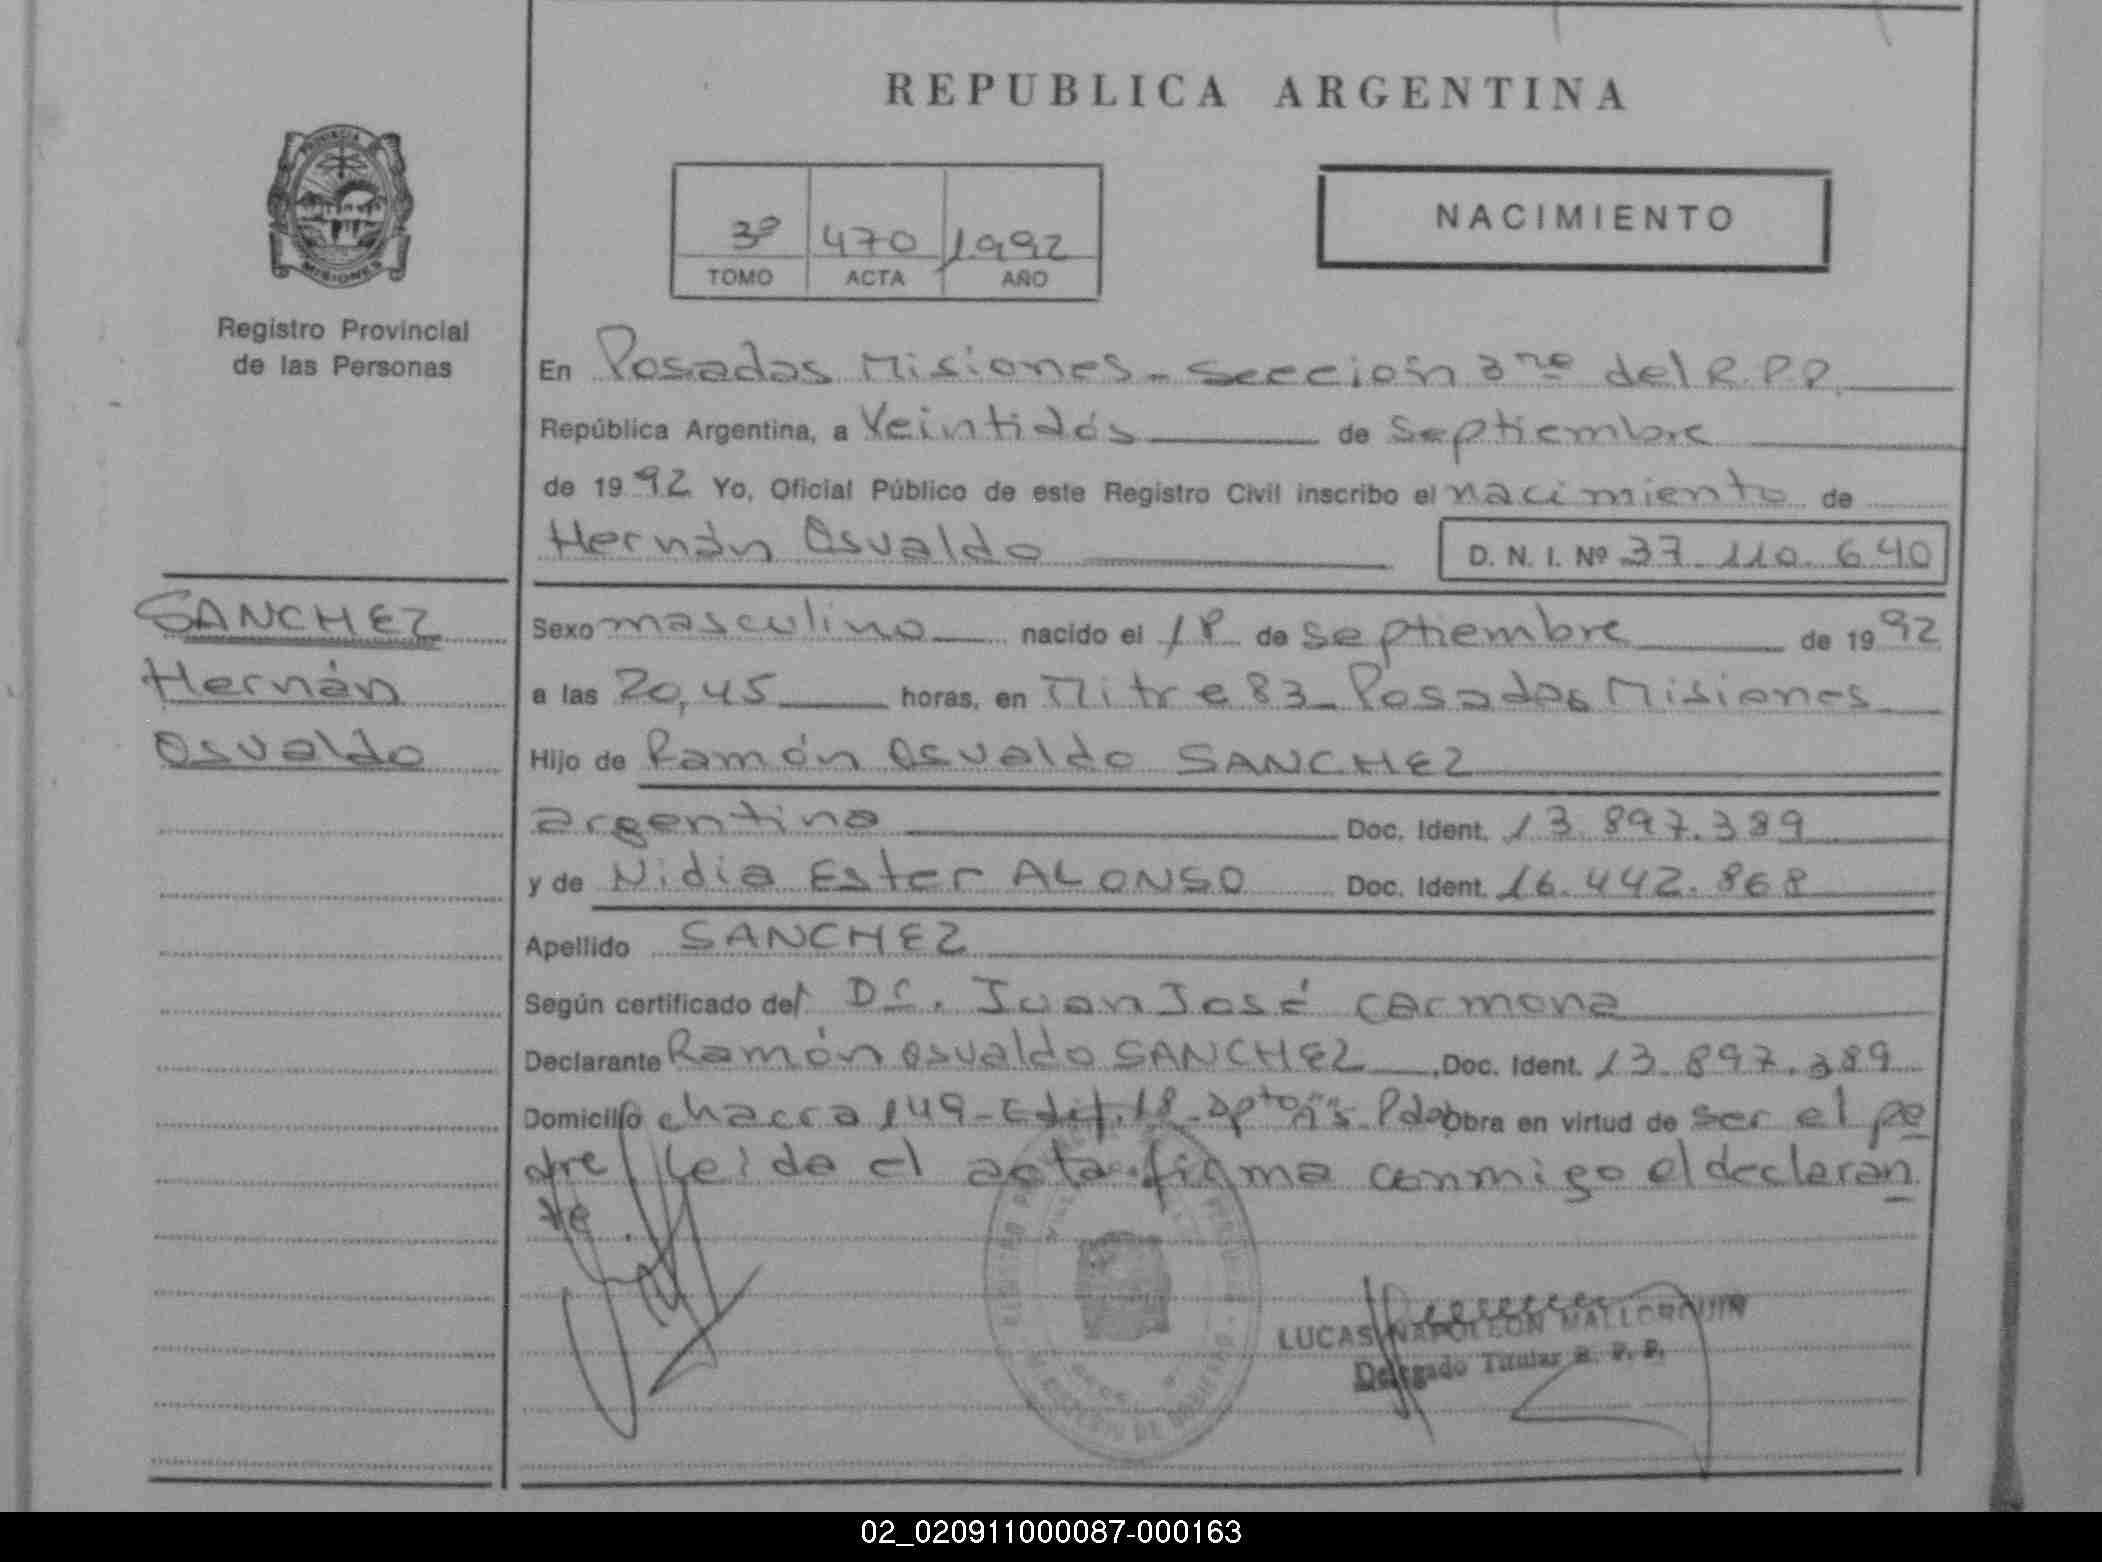 REPUBLICA ARGENTINA
PROVINCIA
MISIONES
Registro Provincial
de las Personas
3º 470 1992
TOMO ACTA AÑO
NACIMIENTO
En Posadas Misiones - Sección 3ra del R.P.P.
República Argentina, a Veintidós de Septiembre
de 1992 Yo, Oficial Público de este Registro Civil inscribo el nacimiento de
Hernán Osvaldo D. N. I. Nº 37.110.640
SANCHEZ
Hernán
Osvaldo
Sexo masculino nacido el 18 de septiembre de 1992
a las 20,45 horas, en Mitre 83 - Posadas Misiones
Hijo de Ramón Osvaldo SANCHEZ
argentino Doc. Ident. 13.897.389
y de Nidia Ester ALONSO Doc. Ident. 16.442.868
Apellido SANCHEZ
Según certificado del Dr. Juan José Carmona
Declarante Ramón Osvaldo SANCHEZ, Doc. Ident. 13.897.389
Domicilio chacra 149 - Edif. 18 - Dpto Pdas Obra en virtud de ser el pa
dre Leida el acta firma conmigo el declaran
te.
LUCAS NAPOLEON MALLORQUIN
Delegado Titular R. P. P.
02_020911000087-000163